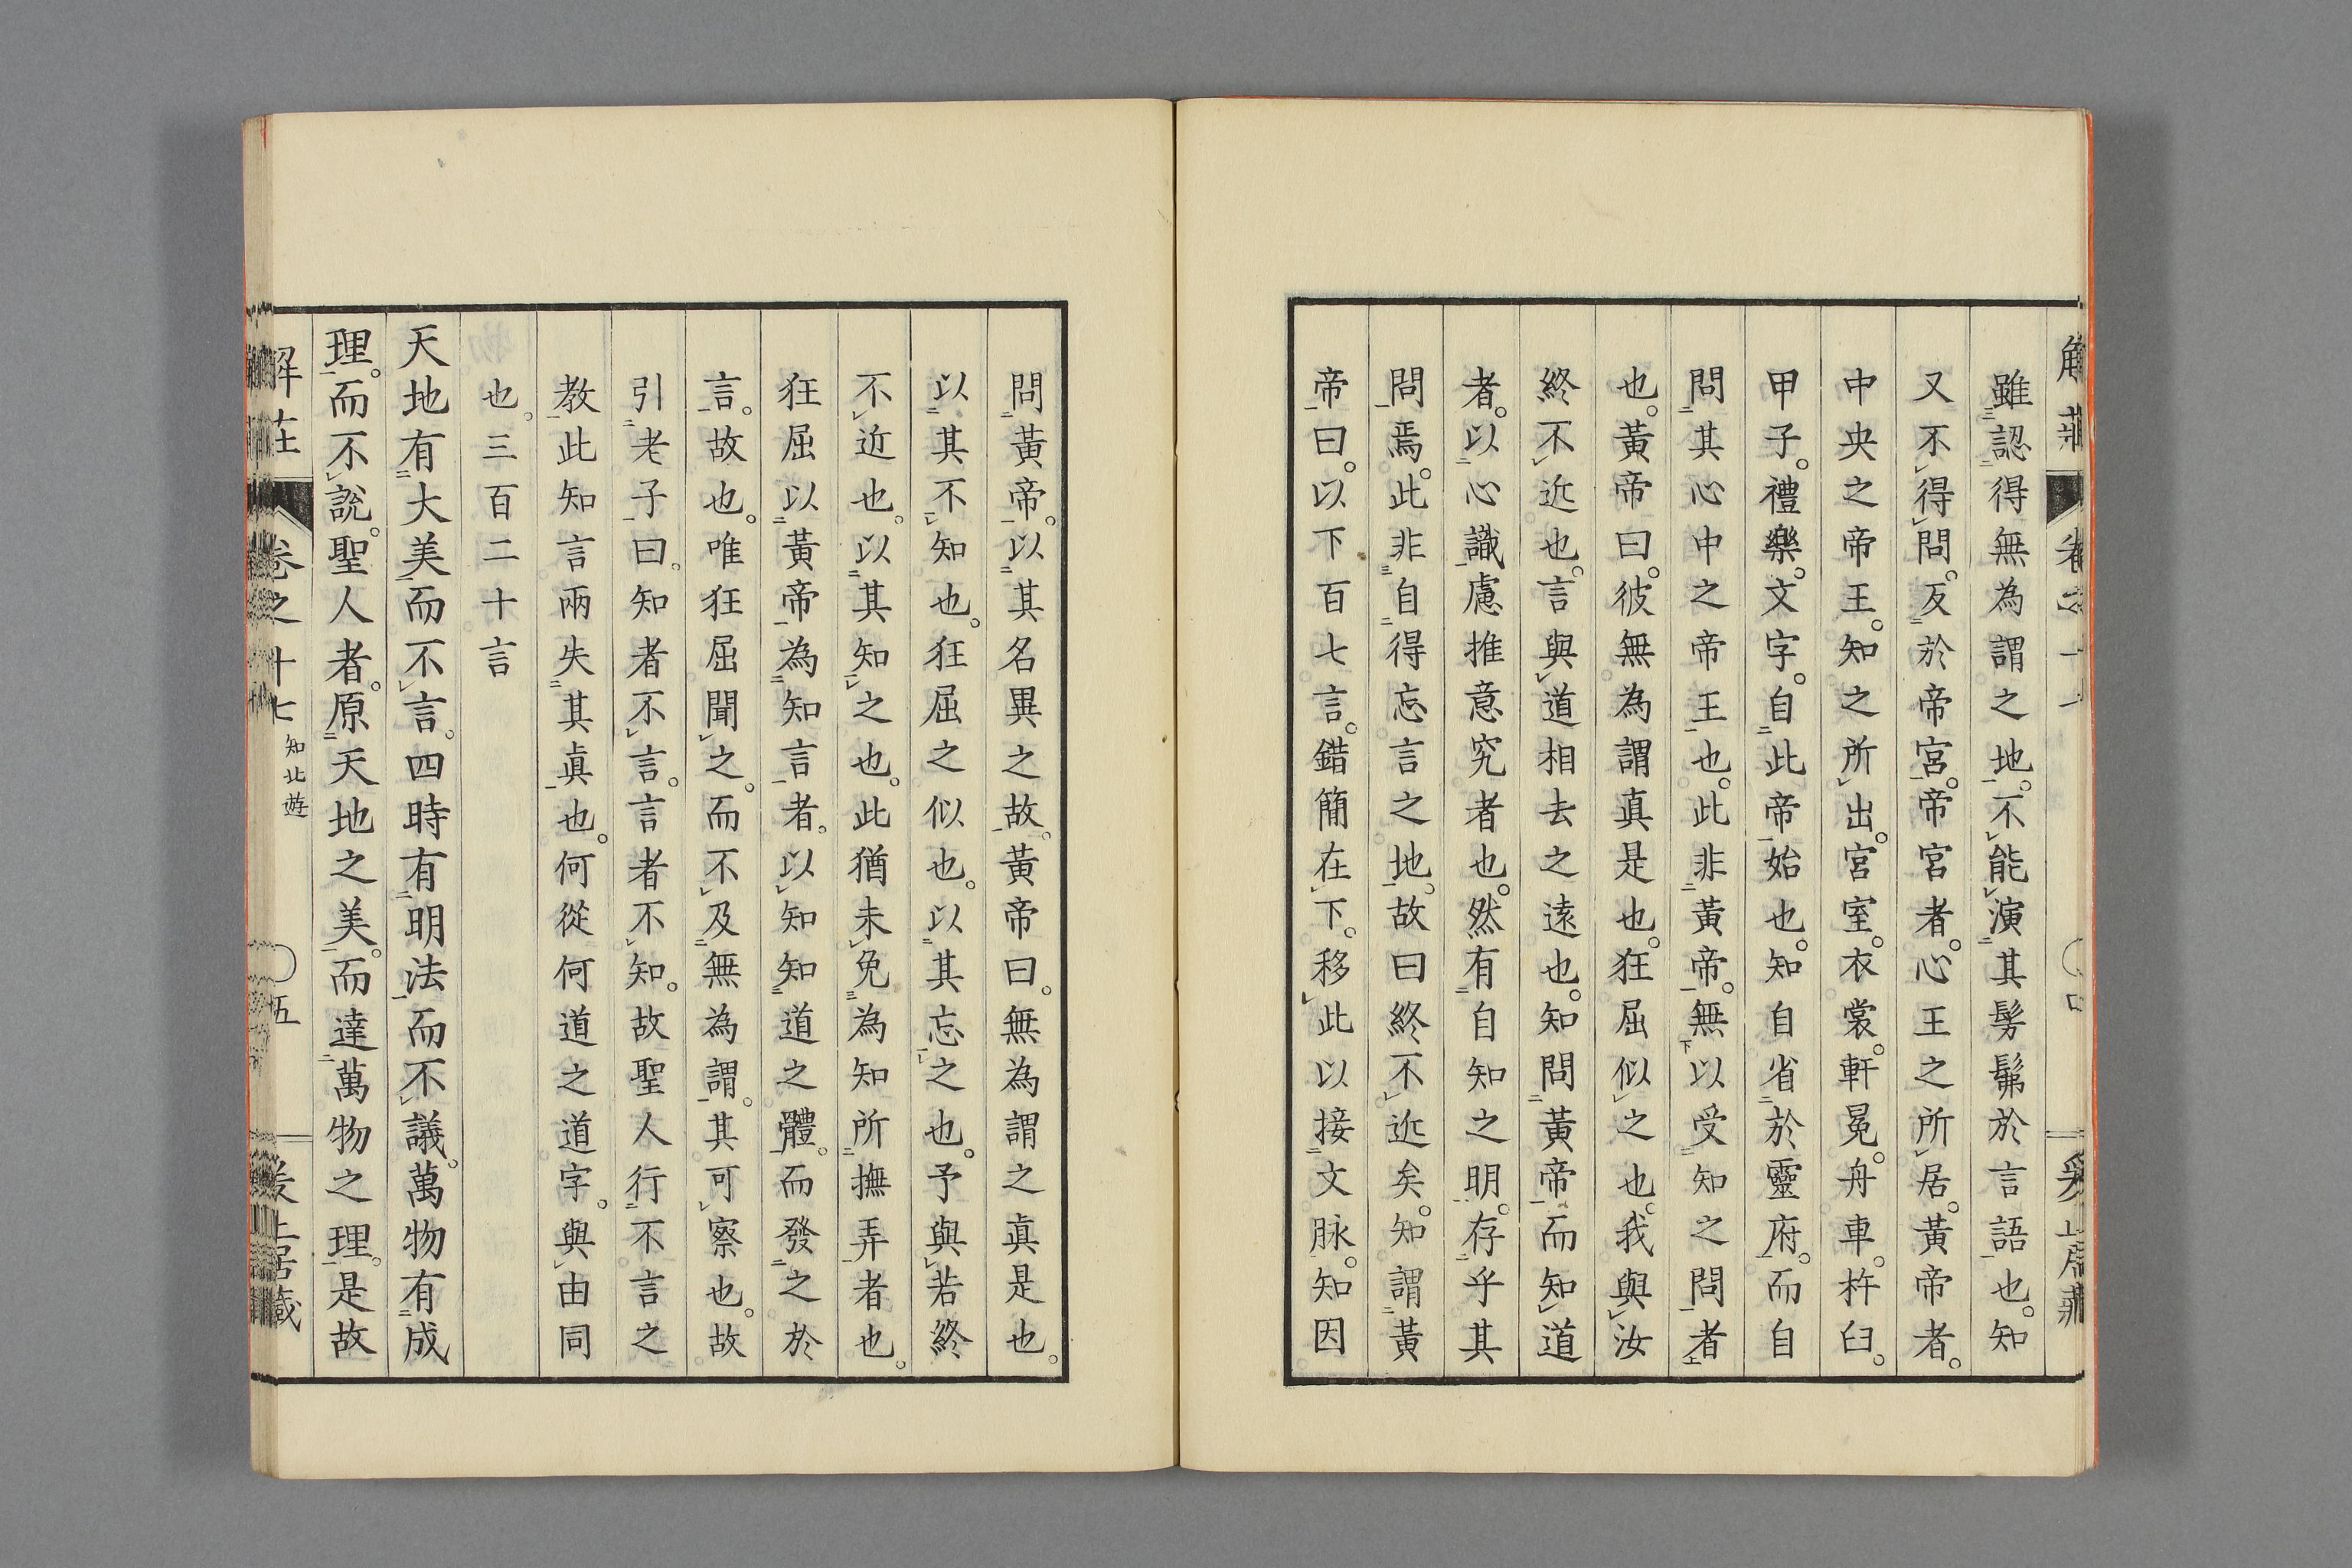 雖認得無為謂之地。不能演其髣髴於言語也。知
又不得問。反於帝宮。帝宮者。心王之所居。黃帝者。
中央之帝王。知之所出。宮室。衣裳。軒冕。舟車。杵臼。
甲子。禮樂。文字。自此帝始也。知自省於靈府。而自
問其心中之帝王也。此非黃帝。無以受知之問者
也。黃帝曰。彼無為謂真是也。狂屈似之也。我與汝
終不近也。言與道相去之遠也。知問黃帝而知道
者。以心識慮推意究者也。然有自知之明。存乎其
問焉。此非自得忘言之地。故曰終不近矣。知謂黃
帝曰。以下百七言。錯簡在下。移此以接文脉。知因
問黃帝。以其名異之故。黃帝曰。無為謂之真是也。
以其不知也。狂屈之似也。以其忘之也。予與若終
不近也。以其知之也。此猶未免為知所撫弄者也。
狂屈以黃帝為知言者。以知知道之體。而發之於
言。故也。唯狂屈聞之。而不及無為謂。其可察也。故
引老子曰。知者不言。言者不知。故聖人行不言之
教此知言兩失其眞也。何從何道之道字。與由同
也。三百二十言
天地有大美而不言。四時有明法而不議。萬物有成
理。而不說。聖人者。原天地之美。而達萬物之理。是故
卷之十七 知北遊 五